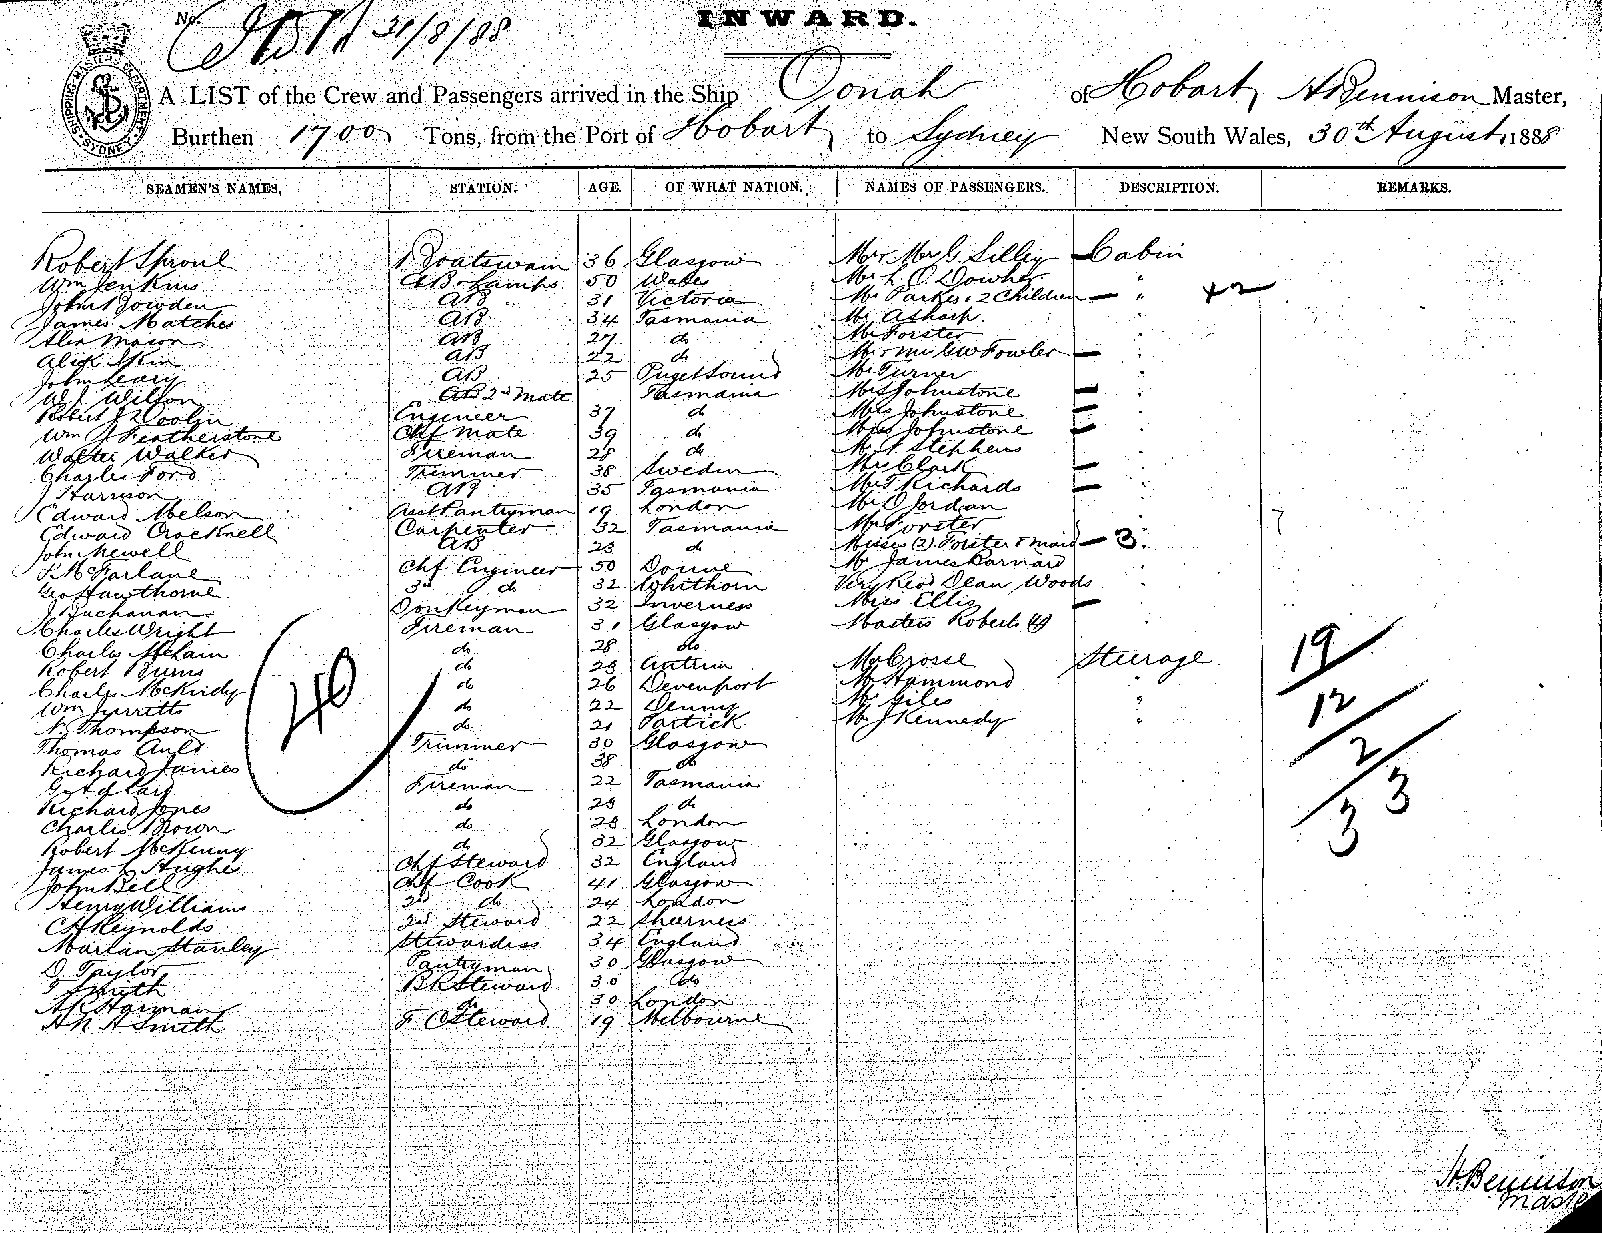 No. 31/8/88
INWARD.
A LIST of the Crew and Passengers arrived in the Ship Oonah of Hobart, H Bennison Master,
Burthen 1700 Tons, from the Port of Hobart to Sydney New South Wales, 30th August, 1888
SHIPPING MASTER'S DEPARTMENT SYDNEY
SEAMEN'S NAMES, STATION. AGE. OF WHAT NATION. NAMES OF PASSENGERS. DESCRIPTION. REMARKS.
Robert Sproul Boatswain 36 Glasgow Mr & Mrs G. Silley Cabin
Wm Jenkins AB & Lamps 50 Wales Mr L. O. "
John Dowden AB 31 Victoria Mrs Parkes & 2 Children " + 2
James Matches AB 34 Tasmania Mr A Sharp "
Alex Mason AB 27 do Mr Forster "
Alex Skin AB 22 do Mr & Mrs GW Fowler "
John Leary AB 25 Puget Sound Mr Turner "
W J Wilson AB 2nd Mate Tasmania Mrs Johnstone "
Robert J Woolin Engineer 37 do Miss Johnstone "
Wm J Featherstone Chf Mate 39 do Miss Johnstone "
Walter Walker Fireman 28 do Mr A Stephens "
Charles Ford Trimmer 38 Sweden Mrs Clark "
J Harrison AB 35 Tasmania Mrs T Richards "
Edward Melson Asst Pantryman 19 London Mr C Jordan "
Edward Crocknell Carpenter 32 Tasmania Mr Forster "
John Newell AB 23 do Misses (2) Forster & maid 3 "
J. McFarlane Chf Engineer 50 Doune Mr James Barnard "
Geo Hawthorne 3rd do 32 Whithorn Very Revd Dean Woods "
J Buchanan Donkeyman 32 Inverness Miss Ellis "
Charles Wright Fireman 31 Glasgow Masters Roberts (4)
Charles McLain do 28 do
Robert Burns do 23 Antrim Mr Crosse Steerage
Charles McKirdy do 26 Devenport Mr Hammond "
Wm Jurretts do 22 Denny Mr Giles "
N. Thompson do 21 Partick Mr J Kennedy "
Thomas Auld Trimmer 30 Glasgow
Richard James do 38 do
Fireman 22 Tasmania
Richard Jones do 23 do
Charles Brown do 28 London
Robert McKenny do 32 Glasgow
James L Hughes Chf Steward 32 England
John Bell Chf Cook 41 Glasgow
Henry Williams 2nd do 24 London
CH Reynolds 2nd Steward 22 Sheerness
Marian Stanley Stewardess 34 England
D. Taylor Pantryman 30 Glasgow
F Smith BR Steward 30 do
A R Harman do 30 London
H R H Smith F C Steward 19 Melbourne
40
19
12
2
3
33
H. Bennison
Master